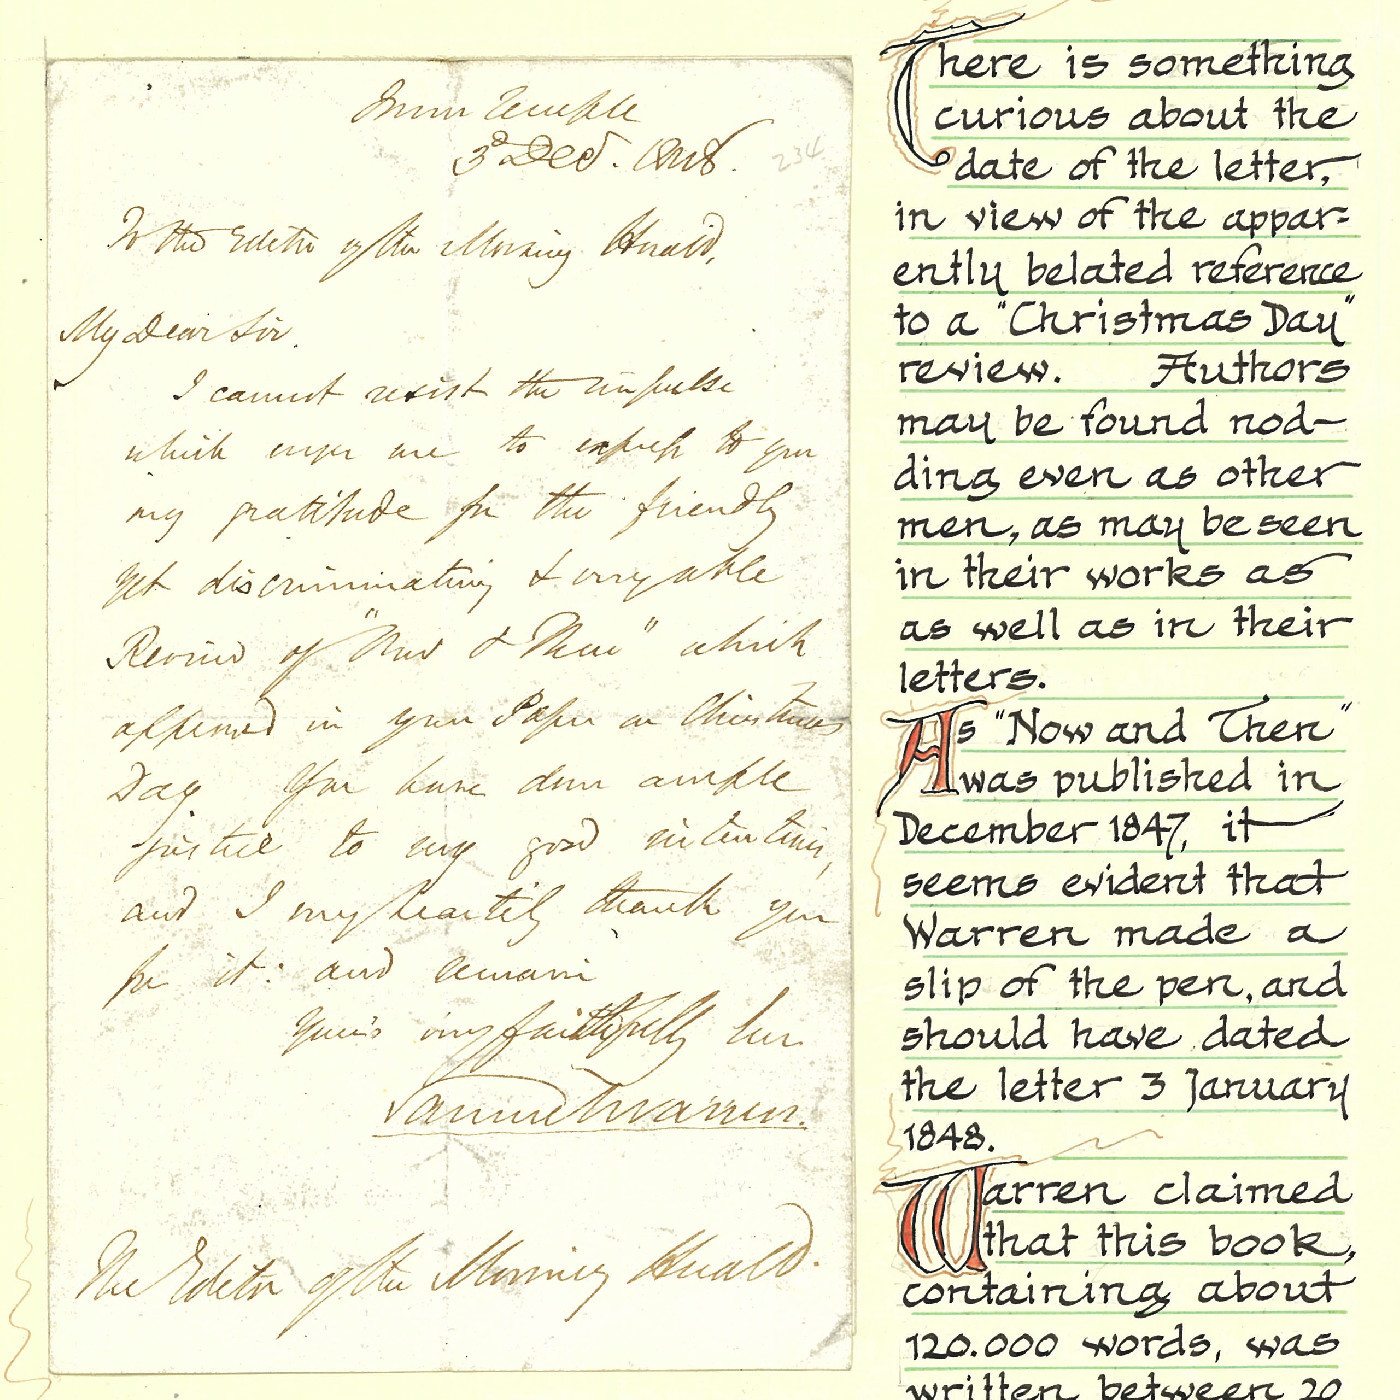 Inner Temple
3d Decr. 1848.
234
To the Editor of the Morning Herald,
My Dear Sir.
I cannot resist the impulse
which urges me to express to you
my gratitude for the friendly
yet discriminating & very able
Review of "Now & Then" which
appeared in your Paper on Christmas
Day You have done ample
justice to my good intentions,
and I very heartily thank you
for it: and remain
Yours very faithfully
Samuel Warren.
The Editor of the Morning Herald.
There is something
curious about the
date of the letter,
in view of the appar=
ently belated reference
to a "Christmas Day"
review. Authors
may be found nod-
ding even as other
men, as may be seen
in their works as
as well as in their
letters.
As "Now and Then"
was published in
December 1847, it
seems evident that
Warren made a
slip of the pen, and
should have dated
the letter 3 January
1848.
Warren claimed
that this book,
containing about
120.000 words, was
written between 20